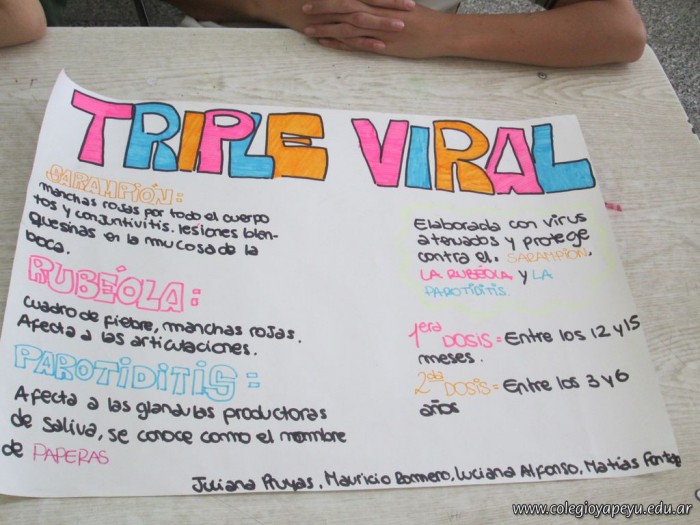 TRIPLE VIRAL
SARAMPIÓN:
manchas rojas por todo el cuerpo
tos y conjuntivitis. lesiones blan-
quesinas en la mucosa de la
boca.
RUBEÓLA:
cuadro de fiebre, manchas rojas.
Afecta a las articulaciones.
PAROTIDITIS:
Afecta a las glandulas productoras
de saliva, se conoce como el nombre
de PAPERAS
Elaborada con virus
atenuados y protege
contra el. SARAMPION,
LA RUBÉOLA y LA
PAROTIDITIS.
1era DOSIS = Entre los 12 y 15
meses.
2da DOSIS = Entre los 3 y 6
años
Juliana Pruyas, Mauricio Romero, Luciana Alfonso, Matías
www.colegioyapeyu.edu.ar